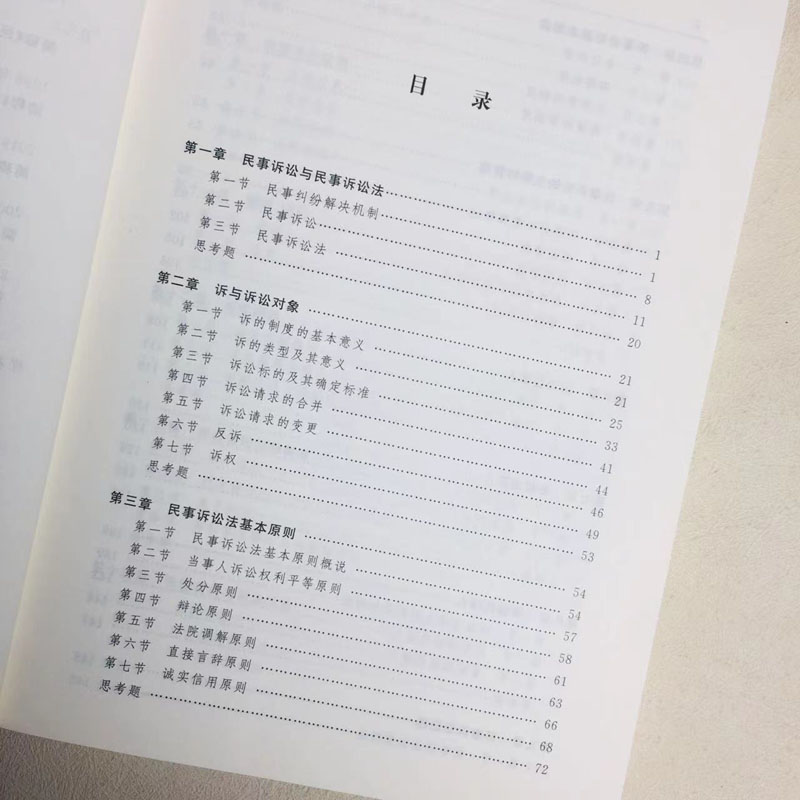 目 录
第一章 民事诉讼与民事诉讼法……1
第一节 民事纠纷解决机制……1
第二节 民事诉讼……8
第三节 民事诉讼法……11
思考题……20
第二章 诉与诉讼对象……21
第一节 诉的制度的基本意义……21
第二节 诉的类型及其意义……25
第三节 诉讼标的及其确定标准……33
第四节 诉讼请求的合并……41
第五节 诉讼请求的变更……44
第六节 反诉……46
第七节 诉权……49
思考题……53
第三章 民事诉讼法基本原则……54
第一节 民事诉讼法基本原则概说……54
第二节 当事人诉讼权利平等原则……57
第三节 处分原则……58
第四节 辩论原则……61
第五节 法院调解原则……63
第六节 直接言辞原则……66
第七节 诚实信用原则……68
思考题……72